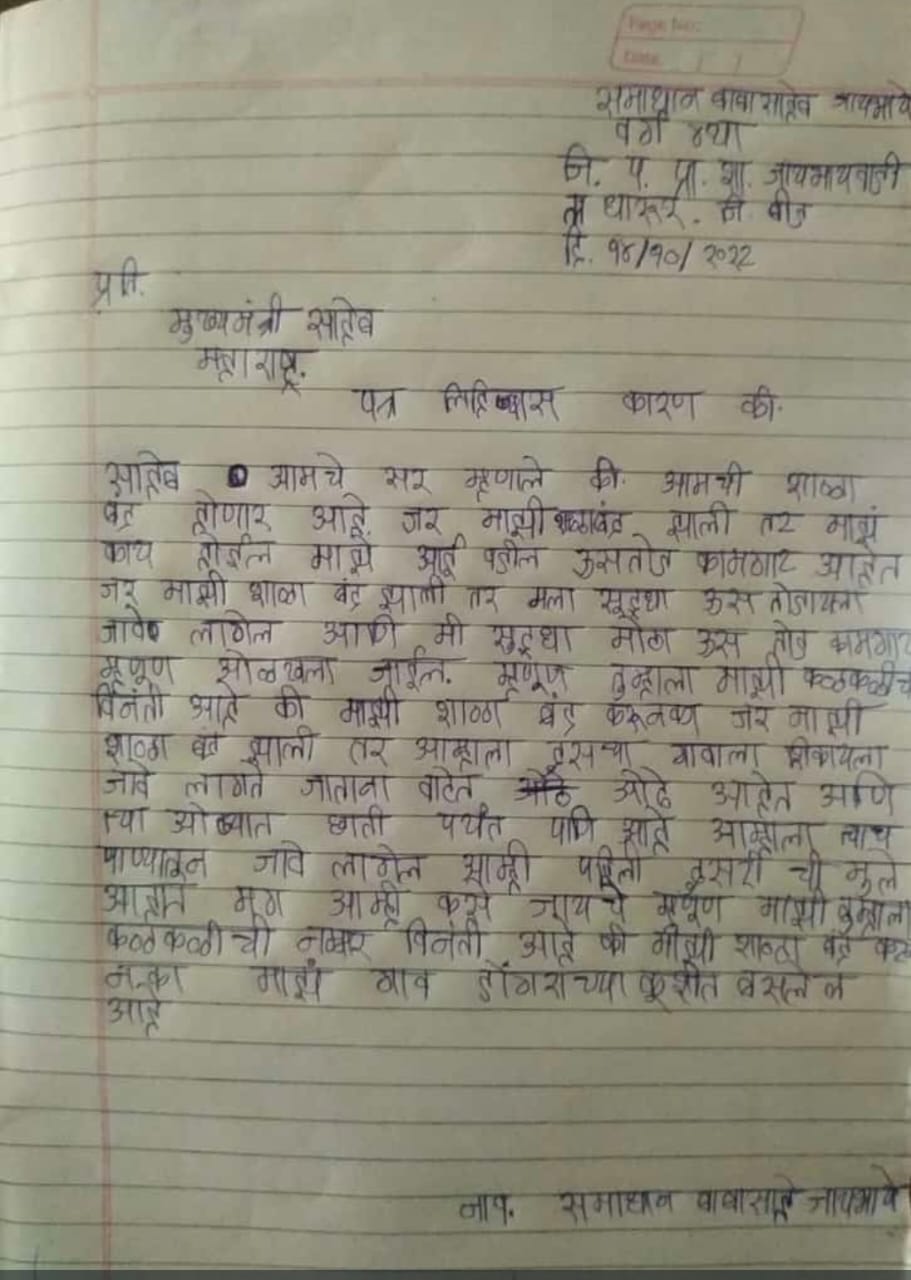 Page No.:
Date
समाधान बाबासाहेब जायभाये
वर्ग ४था
जि. प. प्रा. शा. जायभायवाडी
ता धारूर. जि बीड
दि. १४/१०/२०२२
प्रति.
मुख्यमंत्री साहेब
महाराष्ट्र.
पत्र लिहिण्यास कारण की.
साहेब आमचे सर म्हणाले की. आमची शाळा
बंद होणार आहे. जर माझी शाळा बंद झाली तर माझं
काय होईल माझे आई वडील ऊसतोड कामगार आहेत
जर माझी शाळा बंद झाली तर मला सुद्धा ऊस तोडायला
जावे लागेल आणि मी सुद्धा मोठा ऊस तोड कामगार
म्हणुण ओळखला जाईल. म्हणुण तुम्हाला माझी कळकळीच
विनंती आहे की माझी शाळा बंद करू नय जर माझी
शाळा बंद झाली तर आम्हाला दुसऱ्या गावाला शीकायला
जावे लागते जाताना वाटेत ओढे आहेत आणि
त्या ओढ्यात छाती पर्यंत पाणि आहे आम्हाला त्याच
पाण्यातून जावे लागेल आम्ही पहिली दुसरी ची मुले
आहोत मग आम्ही कसे जायचे म्हणुण माझी तुम्हाला
कळकळीची नम्र विनंती आहे की माझी शाळा बंद करू
नका माझं गाव डोंगराच्या कुशीत वसलेल
आहे
समाधान बाबासाहे जायभाये